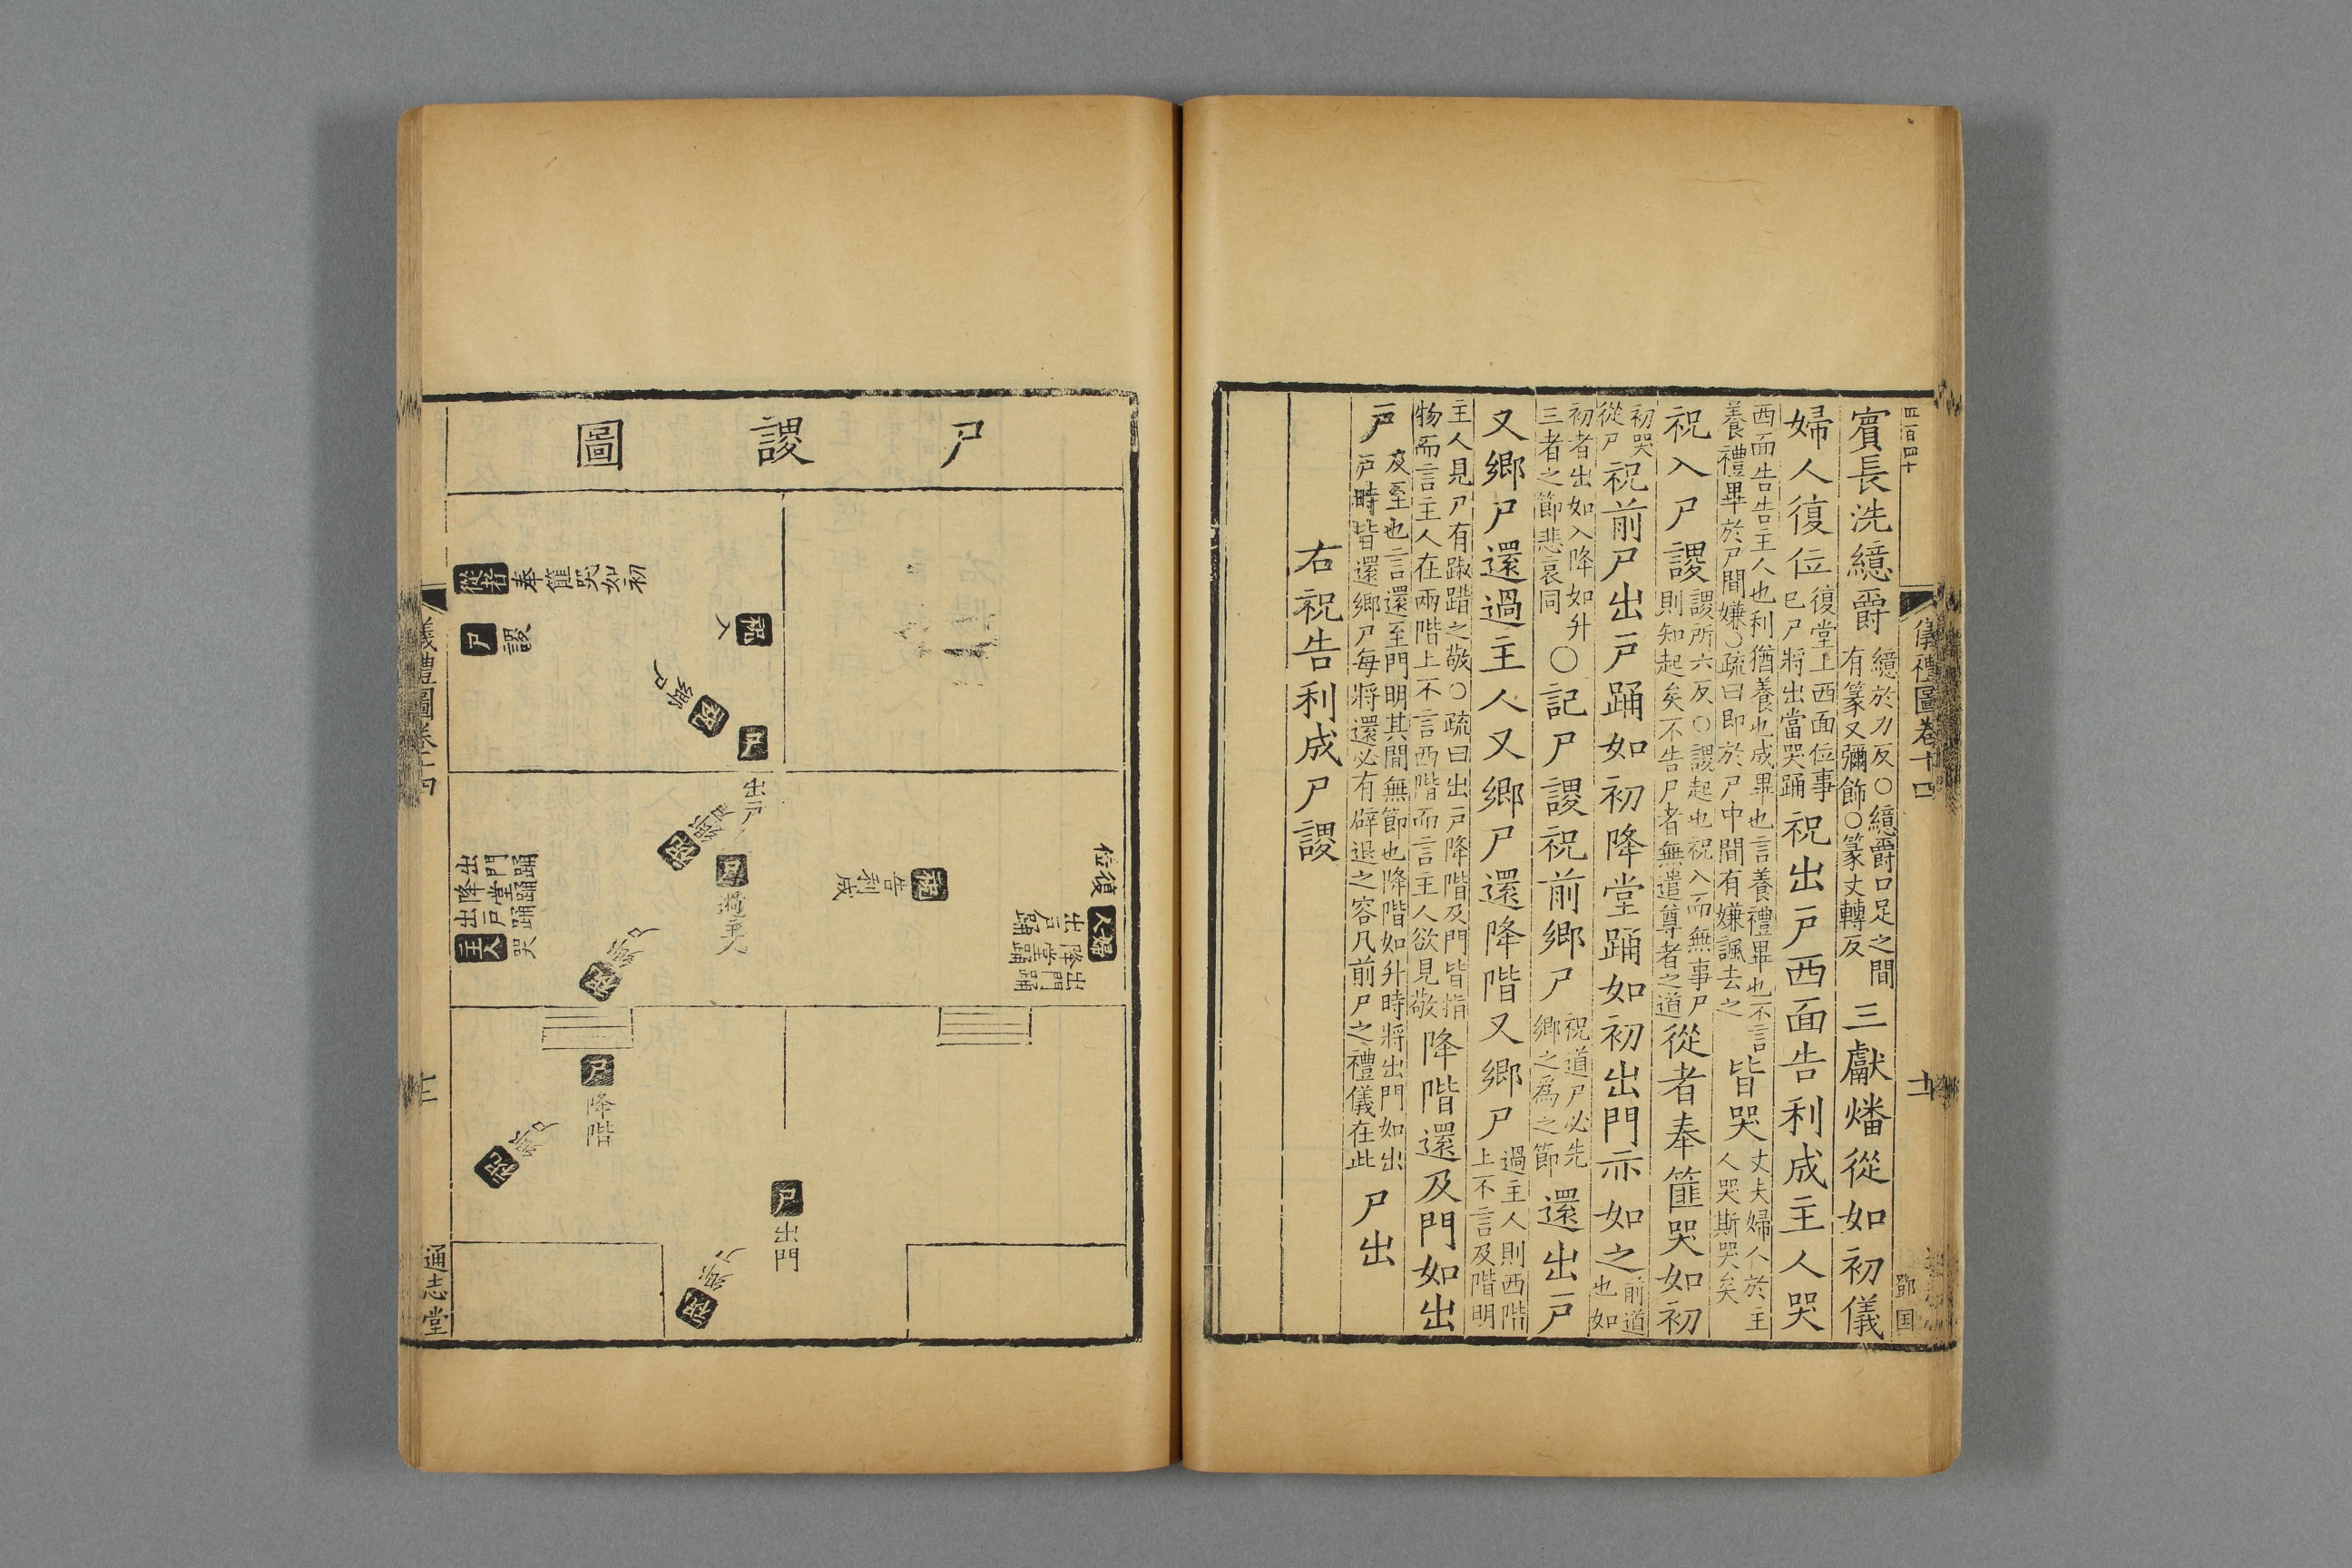 四百四十
儀禮圖卷十四
鄧国
賔長洗繶爵
繶於力反〇繶爵口足之間
有篆又彌飾〇篆丈轉反
三獻燔從如初儀
婦人復位
復堂上西面位事
巳尸將出當哭踊
祝出戶西面告利成主人哭
西面告告主人也利猶養也成畢也言養禮畢也不言
養禮畢於尸間嫌〇疏曰即於尸中間有嫌諷去之
皆哭
丈夫婦人於主
人哭斯哭矣
祝入尸謖
謖所六反〇謖起也祝入而無事尸
則知起矣不告尸者無遣尊者之道
從者奉篚哭如初
初哭
從尸
祝前尸出戶踊如初降堂踊如初出門亦如之
前道
也如
初者出如入降如升
三者之節悲哀同
〇記尸謖祝前鄉尸
祝道尸必先
鄉之為之節
還出戶
又鄉尸還過主人又鄉尸還降階又鄉尸
過主人則西階
上不言及階明
主人見尸有踧踖之敬〇疏曰出戶降階及門皆指
物而言主人在兩階上不言西階而言主人欲見敬
降階還及門如出
戶
及至也言還至門明其間無節也降階如升時將出門如出
戶時皆還鄉尸每將還必有辟退之容凡前尸之禮儀在此
尸出
右祝告利成尸謖
尸謖圖
祝
入
從者
奉篚哭如初
尸
謖
祝
鄉尸
尸
出戶
祝
鄉尸
尸
過主人
祝
告利成
復位
婦人
出戶踊
降堂踊
出門踊
主人
哭
出戶踊
降堂踊
出門踊
祝
鄉尸
尸
降階
祝
鄉尸
尸
出門
祝
鄉尸
儀禮圖卷十四
通志堂